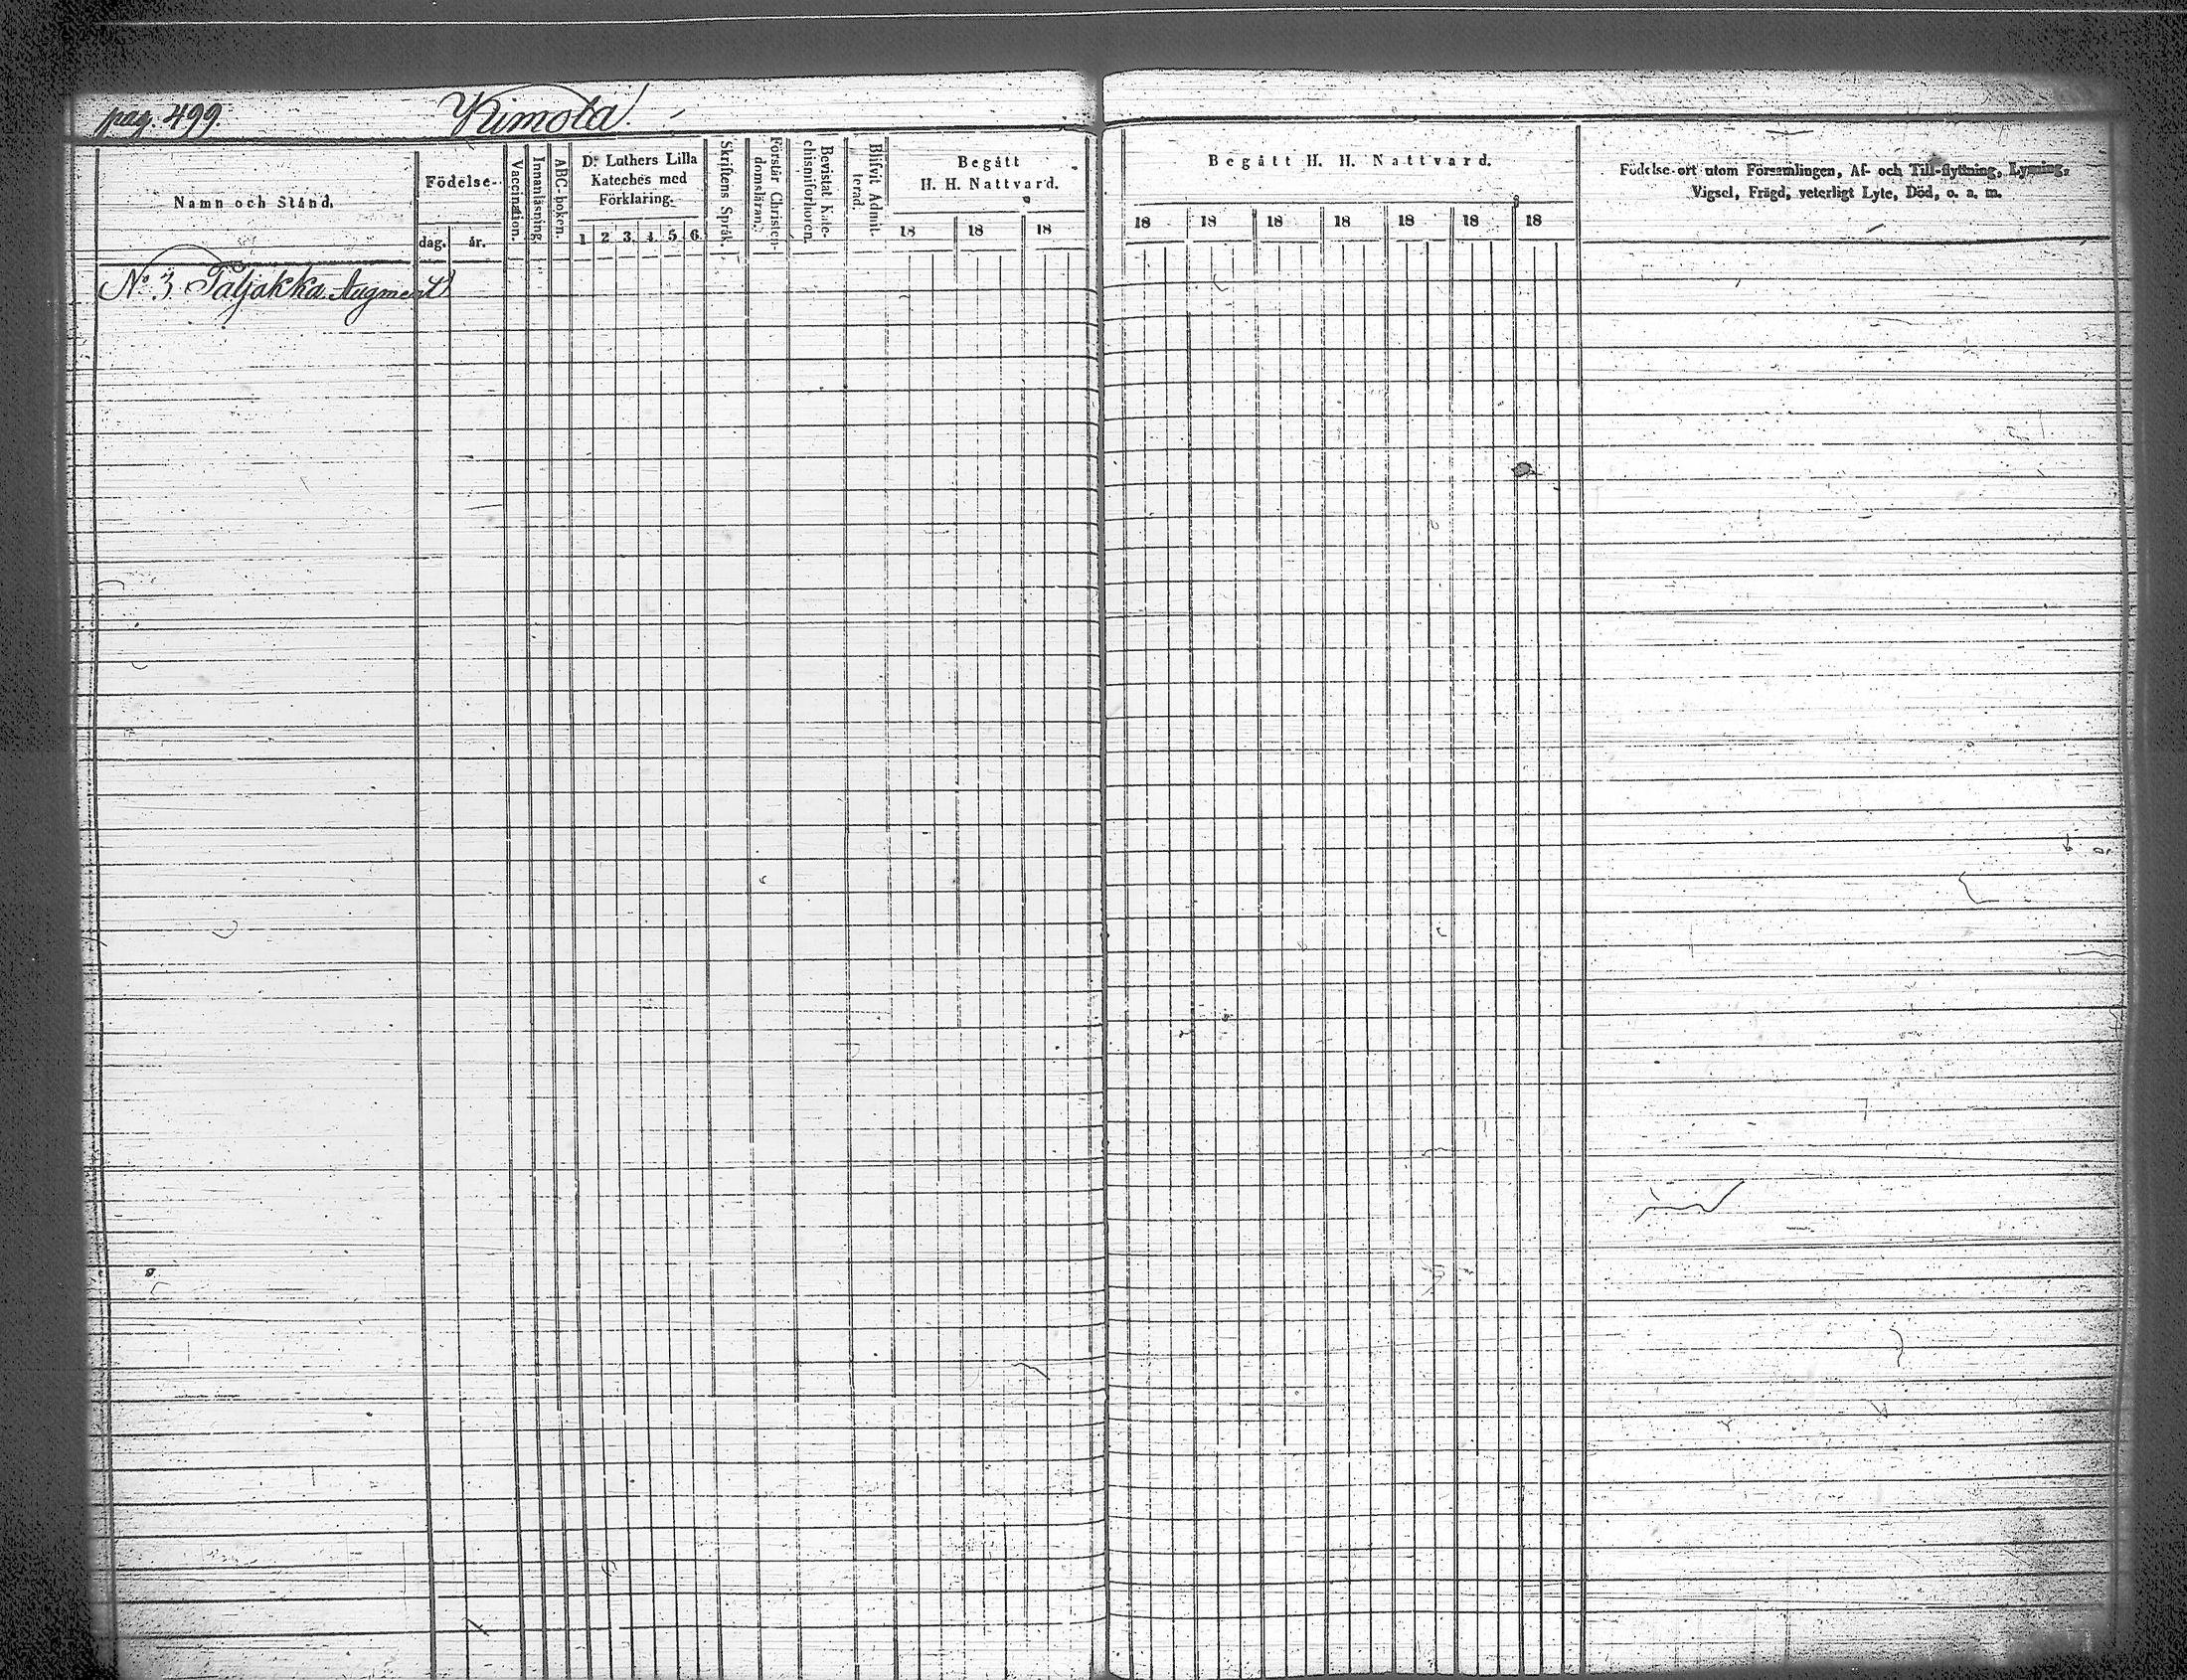 pag. 499. Kimola
Namn och Stånd.
Födelse-
dag. år.
Vaccination.
Innanläsning.
ABC-boken.
D:r Luthers Lilla
Kateches med
Förklaring.
1 2 3. 4. 5 6.
Skriftens Språk.
Förstår Christen-
domsläran.
Bevistat Kate-
chismiförhören.
Blifvit Admit-
terad.
Begått
H. H. Nattvard.
18 18 18
Begått H. H. Nattvard.
18 18 18 18 18 18 18
Födelse-ort utom Församlingen, Af- och Till-flyttning, Lysning,
Vigsel, Frägd, veterligt Lyte, Död, o. a. m.
No 3. Taljakka Augment